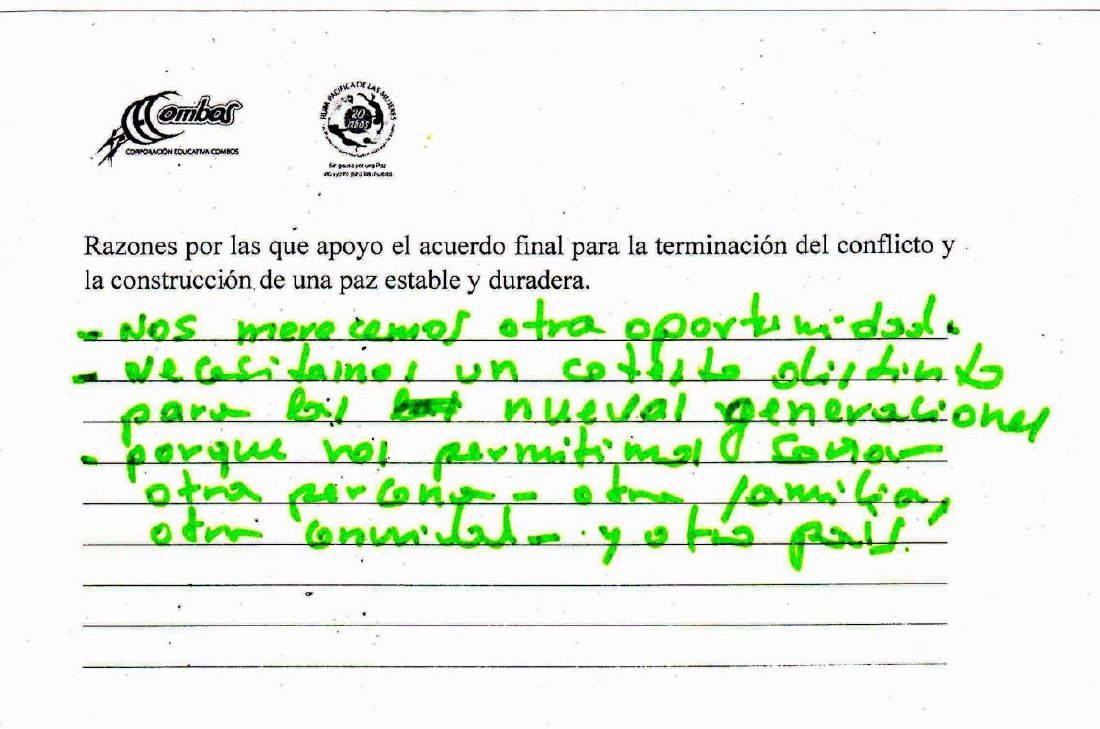 Combos
CORPORACIÓN EDUCATIVA COMBOS
RUTA PACIFICA DE LAS MUJERES
20
años
Razones por las que apoyo el acuerdo final para la terminación del conflicto y
la construcción de una paz estable y duradera.
- Nos merecemos otra oportunidad.
- Necesitamos un distinto
para las nuevas generaciones
- porque nos permitimos
otra persona - otra familia,
otra - y otro país.